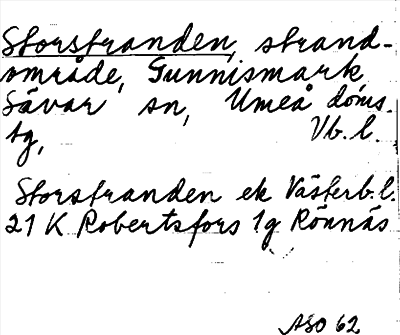 Storstranden, strand-
område, Gunnismark
Sävar sn, Umeå doms.
tg, Vb. l.
Storstranden ek Västerb. l.
21 K Robertsfors 1g Rönnäs
ASO 62